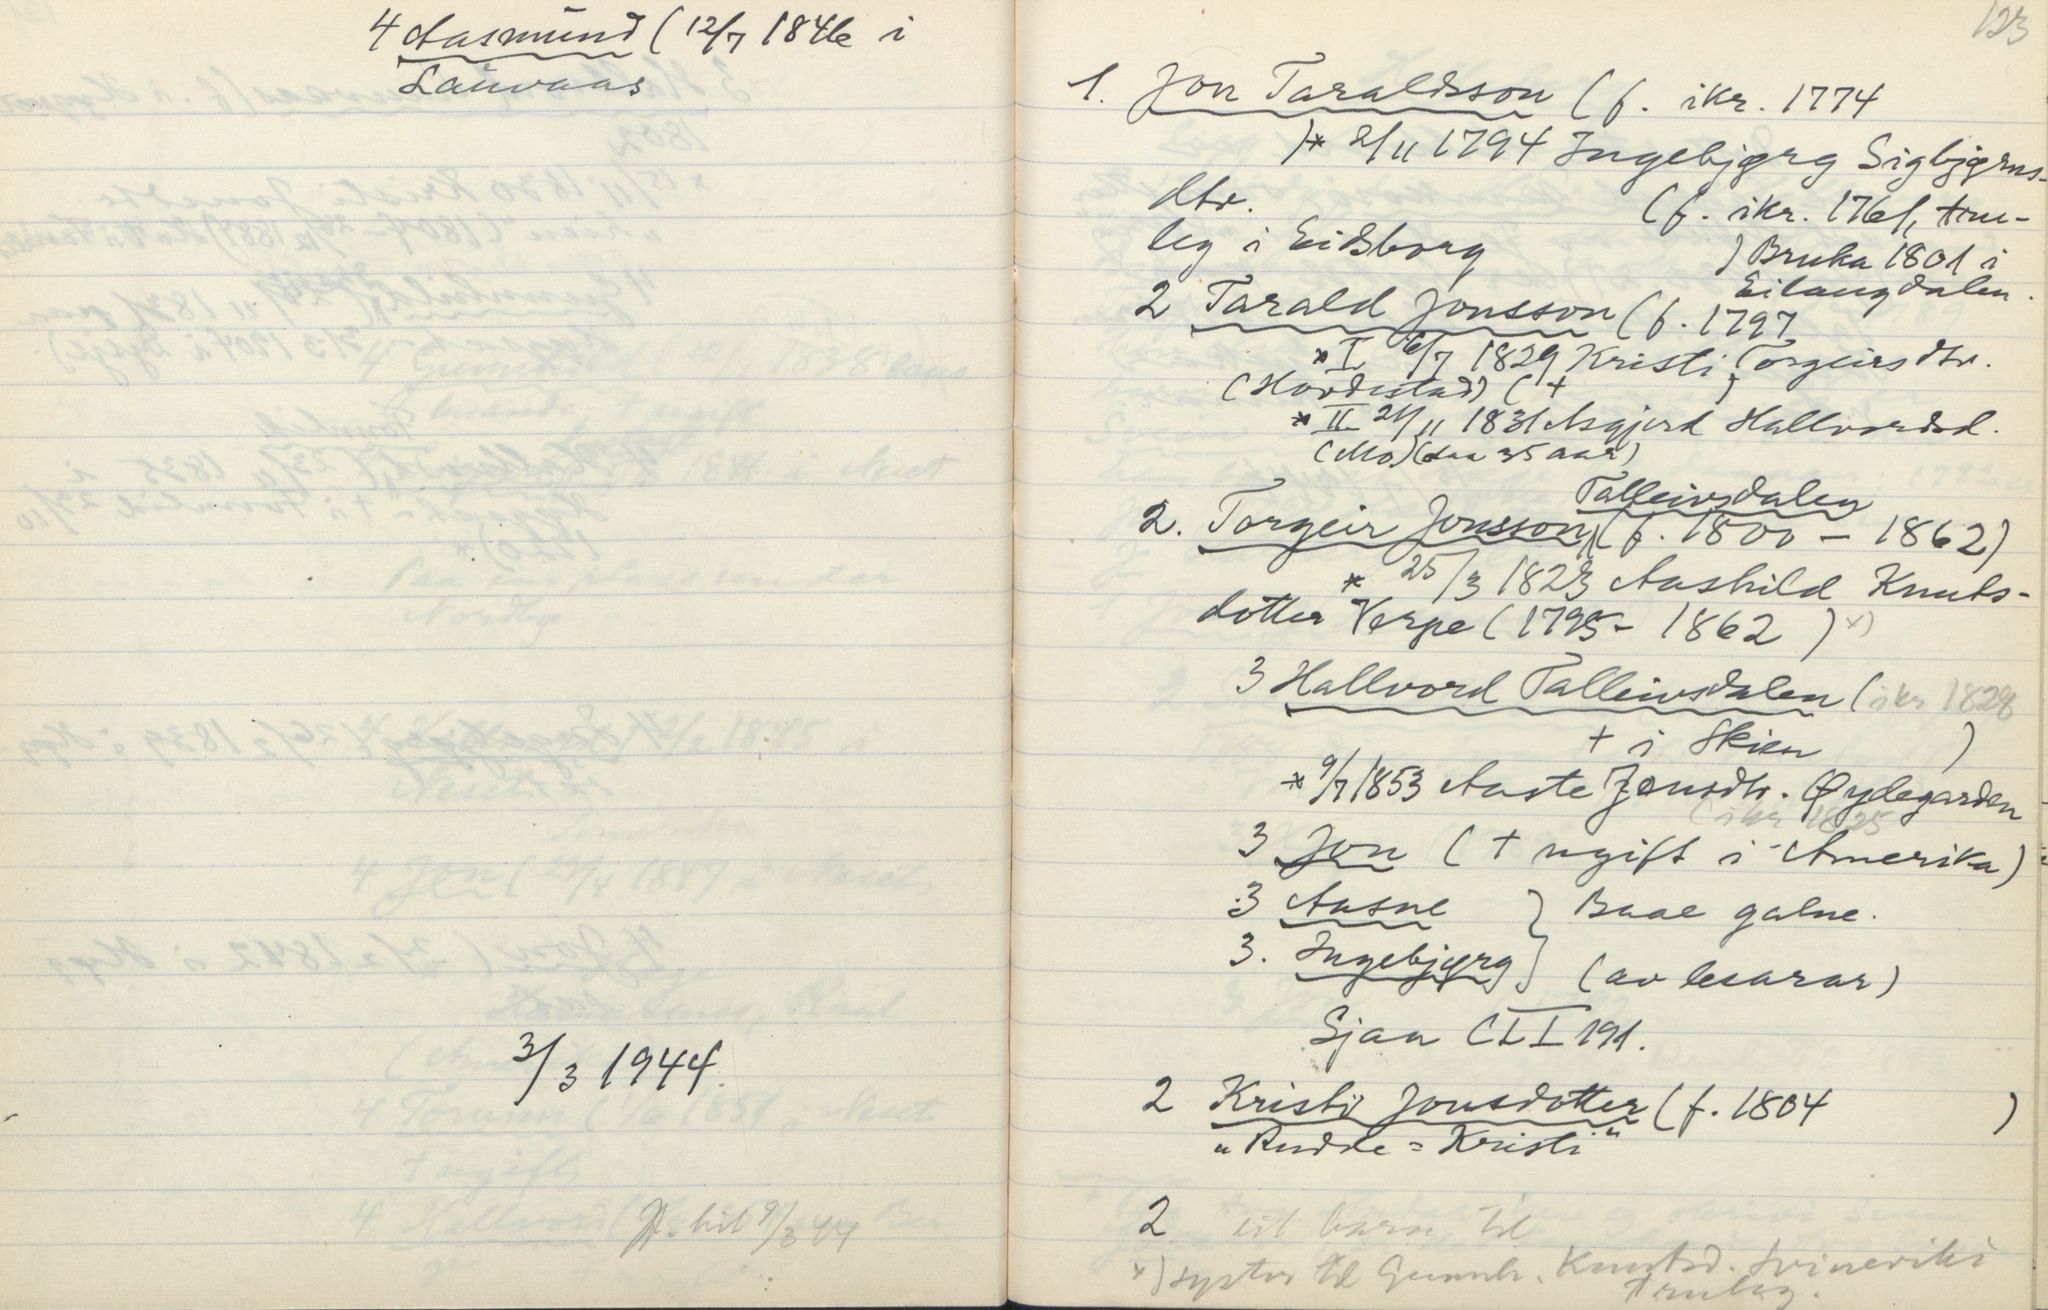 4 Aasmund ( 12/7 1846 i
Lauvaas
3/3 1944.
hit 9/3 44
123
1. Jon Taraldsson ( f. ikr. 1774
)* 2/11 1794 Ingebjørg Sigbjørns-
dtr. ( f. ikr. 1761, tru-
leg i Eidsborg ) Bruka 1801 i
Eilaugdalen.
2 Tarald Jonsson ( f. 1797
* I 6/7 1829 Kristi Torgeirsdtr.
(Hovdestad) ( + )
* II 24/11 1831 Asgjerd Hallvordsd.
(Mo) (daa 35 aar)
Talleivsdalen
2. Torgeir Jonsson ( f. 1800 - 1862)
* 25/3 1823 Aashild Knuts-
dotter Verpe ( 1795 - 1862 ) x)
3 Hallvord Talleivsdalen ( ikr 1828
+ i Skien )
* 9/7 1853 Aaste Jonsdtr. Øydegarden
( ikr 1825
3 Jon ( + ugift i Amerika )
3 Aasne } Baae galne.
3. Ingebjørg } (av lesarar)
Sjaa CLI 191.
2 Kristi Jonsdotter ( f. 1804 )
"Rudde = Kristi"
2 eit barn til
x) syster til Gunnh. Knutsd. Svineviki
truleg.